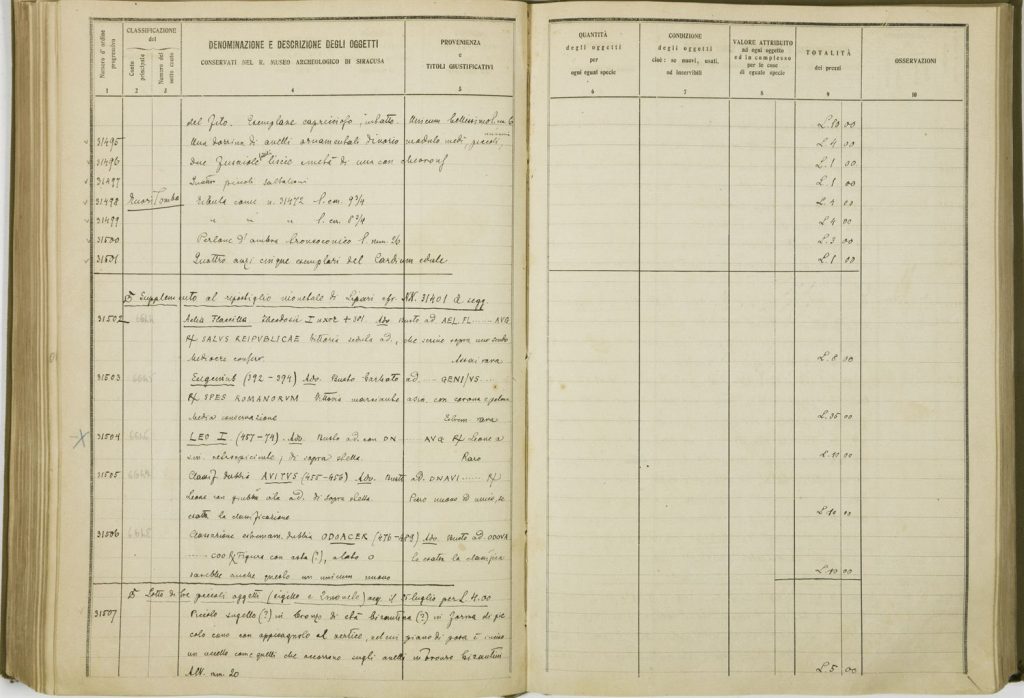 Numero d'ordine progressivo
CLASSIFICAZIONE del
Conto principale
Numero del sotto conto
DENOMINAZIONE E DESCRIZIONE DEGLI OGGETTI
CONSERVATI NEL R. MUSEO ARCHEOLOGICO DI SIRACUSA
PROVENIENZA
e
TITOLI GIUSTIFICATIVI
QUANTITÀ
degli oggetti
per
ogni egual specie
CONDIZIONE
degli oggetti
cioè: se nuovi, usati,
od inservibili
VALORE ATTRIBUITO
ad ogni oggetto
ed in complesso
per le cose
di eguale specie
TOTALITÀ
dei prezzi
OSSERVAZIONI
1 2 3 4 5 6 7 8 9 10
del Zito. Esemplare L. 10 00
31495 Una dozzina di anelli ornamentali di vario modulo medi, piccoli, L. 4 00
31496 due fusaiole liscio metà di una con L. 1 00
31497 Quattro piccoli L. 1 00
31498 Fuori Tomba come n. 31472 l. cm. 9 3/4 L. 4 00
31499 " " " l. cm. 8 3/4 L. 4 00
31500 Perlone d'ambra troncoconico l. mm. 26 L. 3 00
31501 Quattro anzi cinque esemplari del Cardium edule L. 1 00
Supplemento al ripostiglio monetale di Lipari NN. 31401 e segg.
31502 Aelia Flaccilla Theodosii I uxor + 381. Adv. Busto ad. AEL. FL ...... AVG
℞ SALVS REIPVBLICAE Vittoria seduta ad., che scrive sopra uno scudo
Mediocre conserv. Assai rara L. 8 00
31503 Eugenius (392-394) Adv. Busto barbato ad. .... GENI/VS ....
℞ SPES ROMANORVM Vittoria marciante a sin. con corona e palma
Media conservazione rara L. 35 00
31504 LEO I (457-74). Adv. Busto ad. con DN .... AVG ℞ Leone a
sin. retrospiciente, di sopra stella. Raro L. 10 00
31505 Classif. dubbia AVITVS (455-456) Adv. Busto ad. DNAVI ...... ℞
Leone con ad. di sopra stella. Pezzo nuovo ed unico, se
esatta la classificazione L. 10 00
31506 dubbia ODOACER (476-489) Adv. Busto ad. ODOVA
...... COO ℞ Figura con asta (?), a lato O Se esatta la
sarebbe anche questo un unicum nuovo L. 10 00
Lotto di tre piccoli oggetti (sigillo e acq. il 15 luglio per L. 4.00
31507 Piccolo sugello (?) in bronzo di età bizantina (?) in forma di pic
colo cono con appiccagnolo al vertice, nel cui piano di posa è inciso
un uccello come quelli che occorrono sugli anelli in bronzo bizantini
Alt. mm. 20 L. 5 00